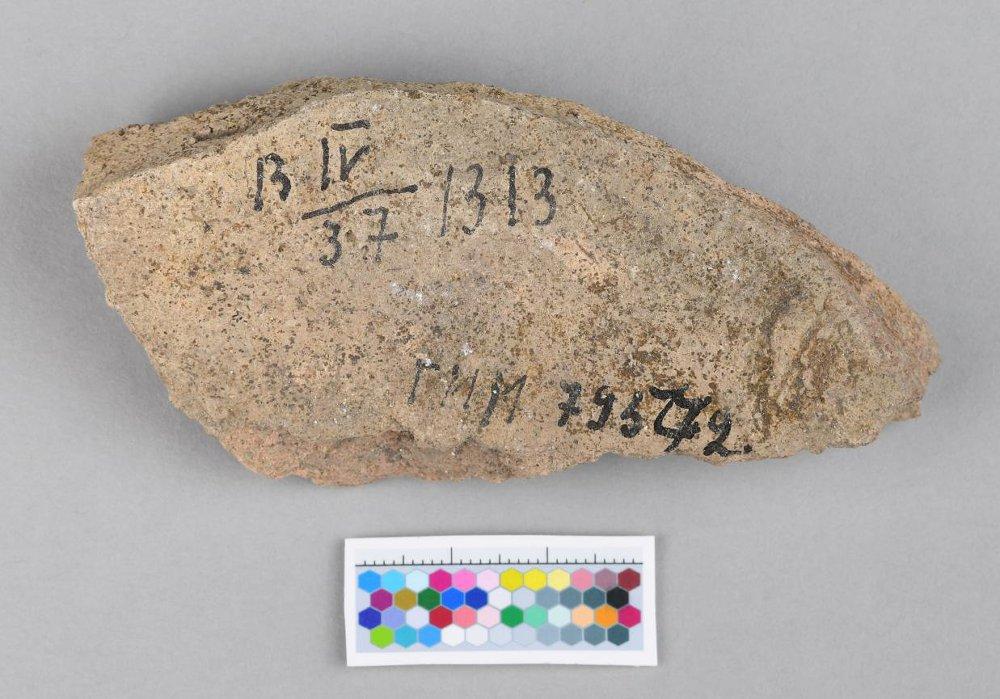 B IV/3.7 1313
ГИМ 79572.